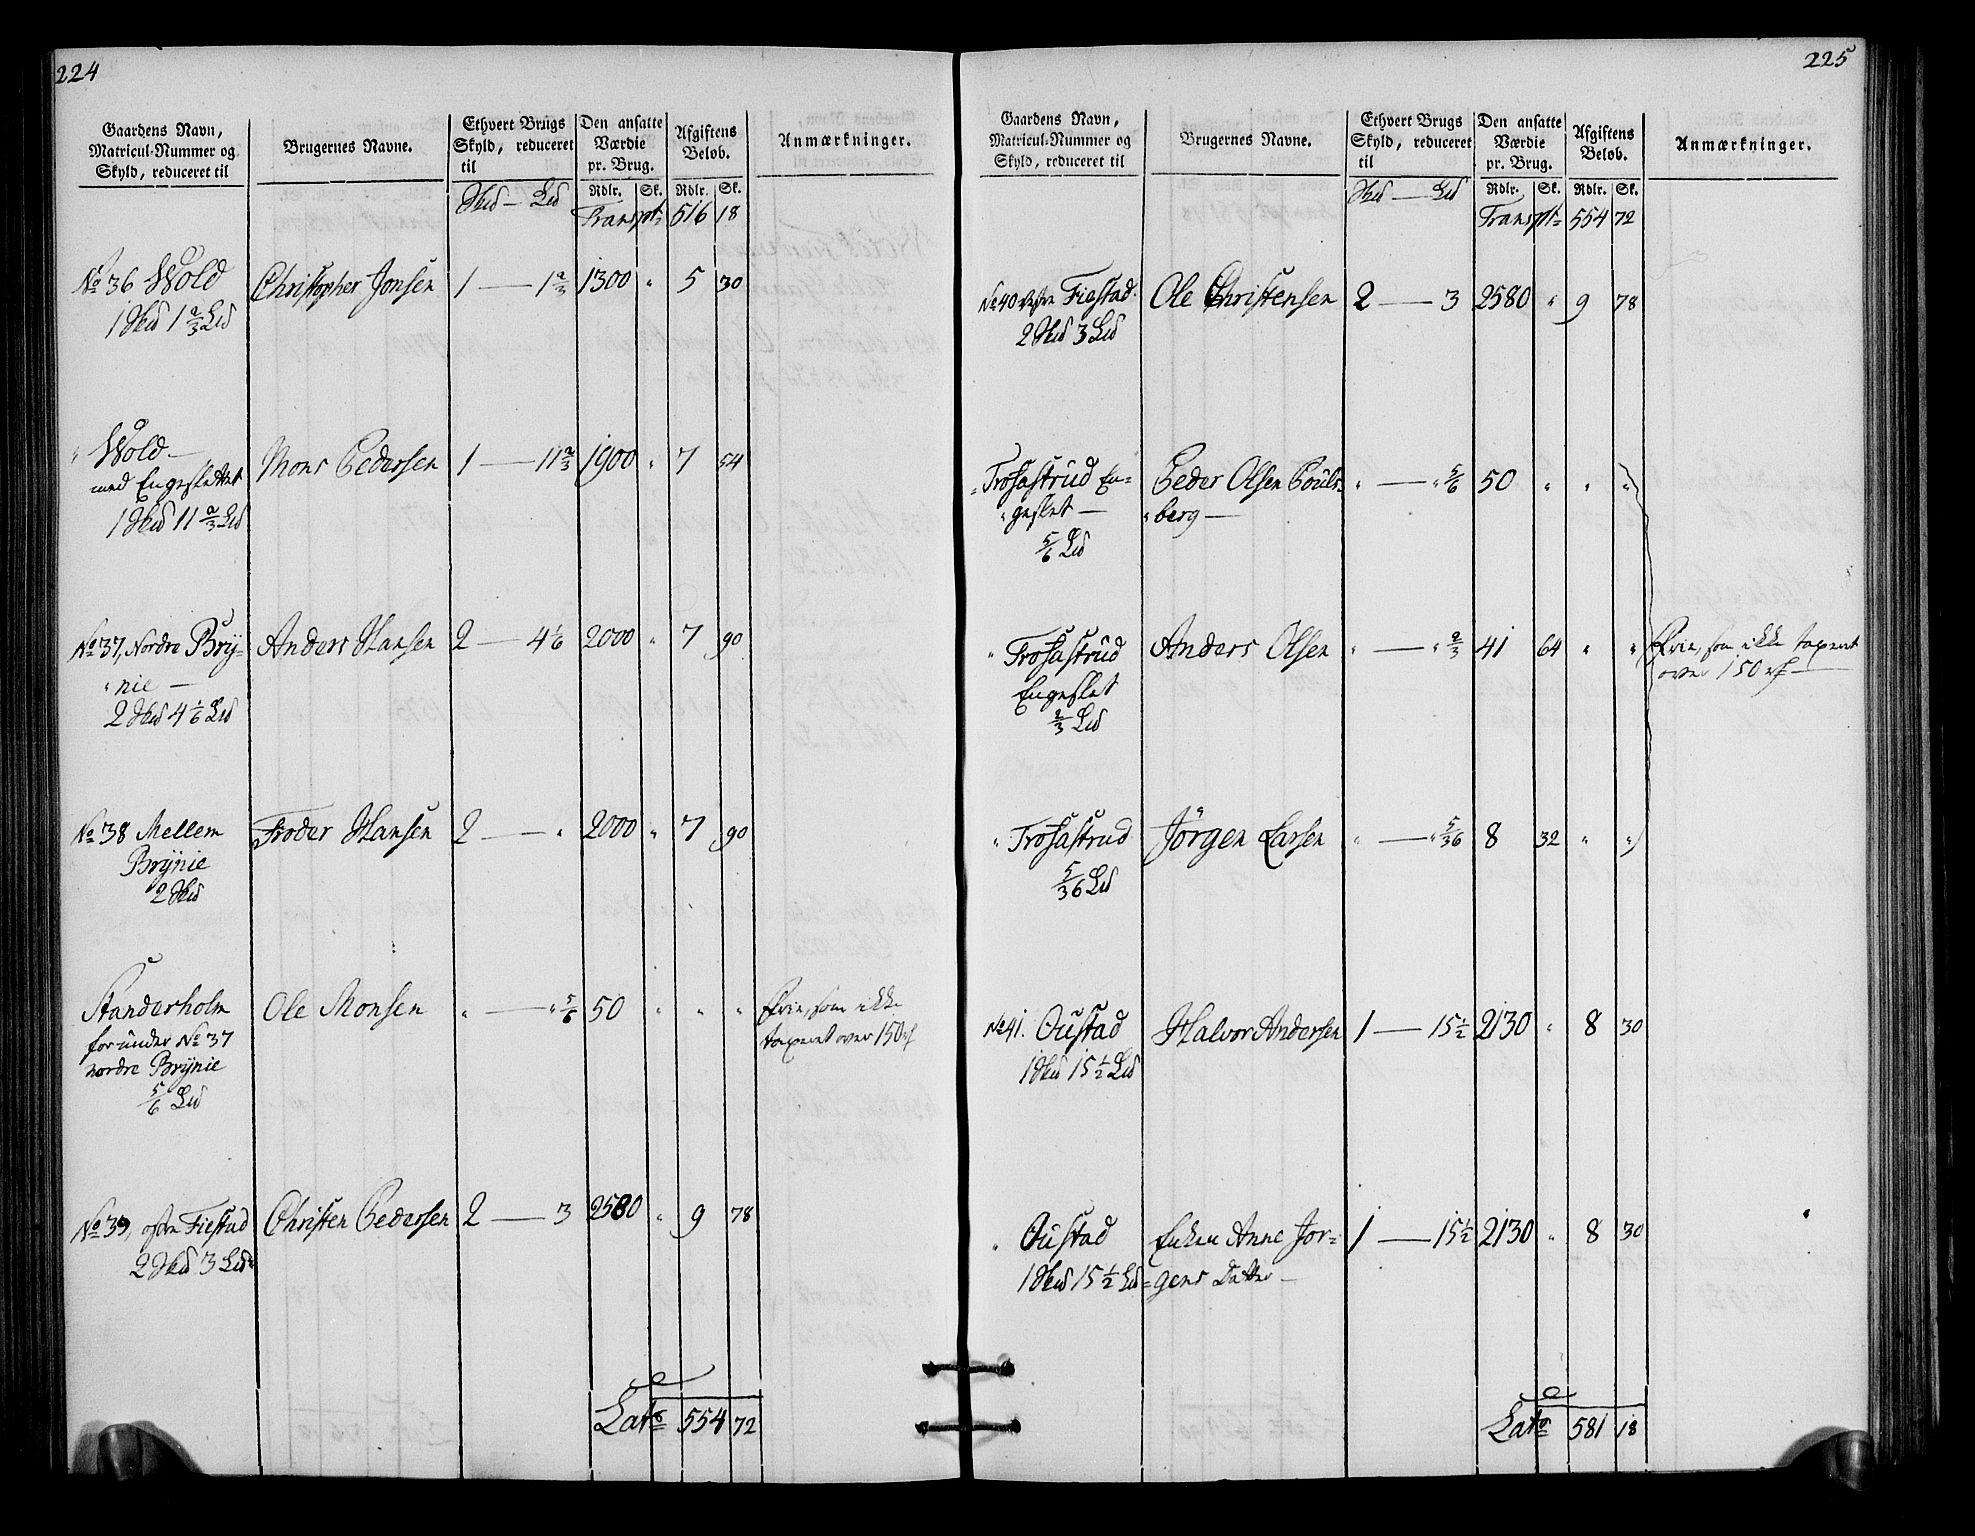 224
Gaardens Navn, Matricul-Nummer og Skyld, reduceret til
Brugernes Navne.
Ethvert Brugs Skyld, reduceret til
Den ansatte Værdie pr. Brug.
Afgiftens Beløb.
Anmærkninger.
Rdlr. Sk. Rdlr. Sk.
Hud — Ld Transpt= 516 18
No 36 Wold Christopher Jonsen 1 — 1 2/3 1300 " 5 30
1 Hud 1 2/3 Ld
" Wold — Mons Pedersen 1 — 11 2/3 1900 " 7 54
med Engeslettet
1 Hud 11 2/3 Ld
No 37, Nordre Brÿ= Anders Hansen 2 — 4 1/6 2000 " 7 90
"nie —
2 Hud 4 1/6 Ld
No 38 Mellem Froder Hansen 2 — " 2000 " 7 90
Brÿnie
2 Hud
Standerholm Ole Monsen " — " 5/6 50 " " " Frie, som ikke
for under No 37 taxeret over 150 rd
nordre Brÿnie
5/6 Ld
No 39, østre Fiestad Christen Pedersen 2 — 3 2580 " 9 78
2 Hud 3 Ld
Lat= 554 72
225
Gaardens Navn, Matricul-Nummer og Skyld, reduceret til
Brugernes Navne.
Ethvert Brugs Skyld, reduceret til
Den ansatte Værdie pr. Brug.
Afgiftens Beløb.
Anmærkninger.
Rdlr. Sk. Rdlr. Sk.
Hud — Ld Transpt= 554 72
No 40 Fiestad Ole Christensen 2 — 3 2580 " 9 78
2 Hud 3 Ld
" Trosastrud En= Peder Olsen Pouls= " — " 5/6 50 " " "
"geslet — "berg —
5/6 Ld
" Trosastrud Anders Olsen " — " 2/3 41 64 " " Frie, som ikke taxeret
Engeslet over 150 rd —
2/3 Ld
" Trosastrud Jörgen Larsen " — " 5/36 8 32 " "
5/36 Ld
No 41. Oustad Halvor Andersen 1 — 15 1/2 2130 " 8 30
1 Hud 15 1/2 Ld
" Oustad Enken Anne Jor= 1 — 15 1/2 2130 " 8 30
1 Hud 15 1/2 Ld =gens Datter —
Lat= 581 18